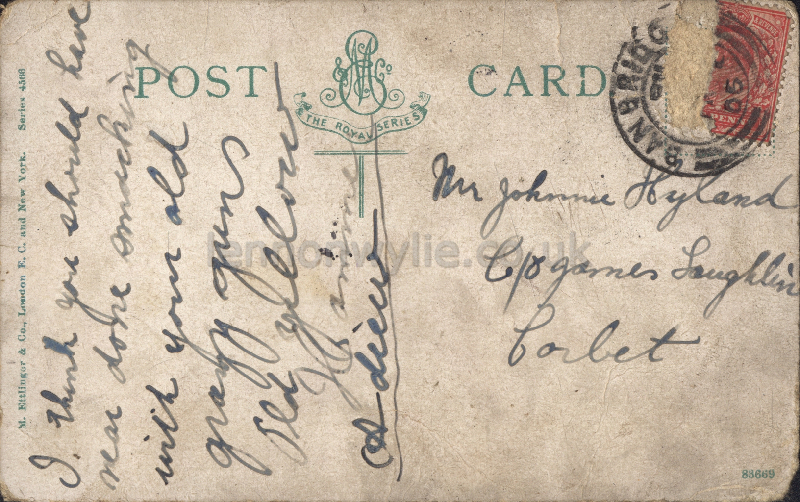 POST CARD
& Co
THE ROYAL SERIES
M. Ettlinger & Co., London E. C. and New York. Series 4566
I think you should have
near done smacking
with your old
grazy guns
Old yellow
Adieu
BANBRIDG
PENN
Mr Johnnie Hyland
C/o James Laughlin
Corbet
lennonwylie.co.uk
83669